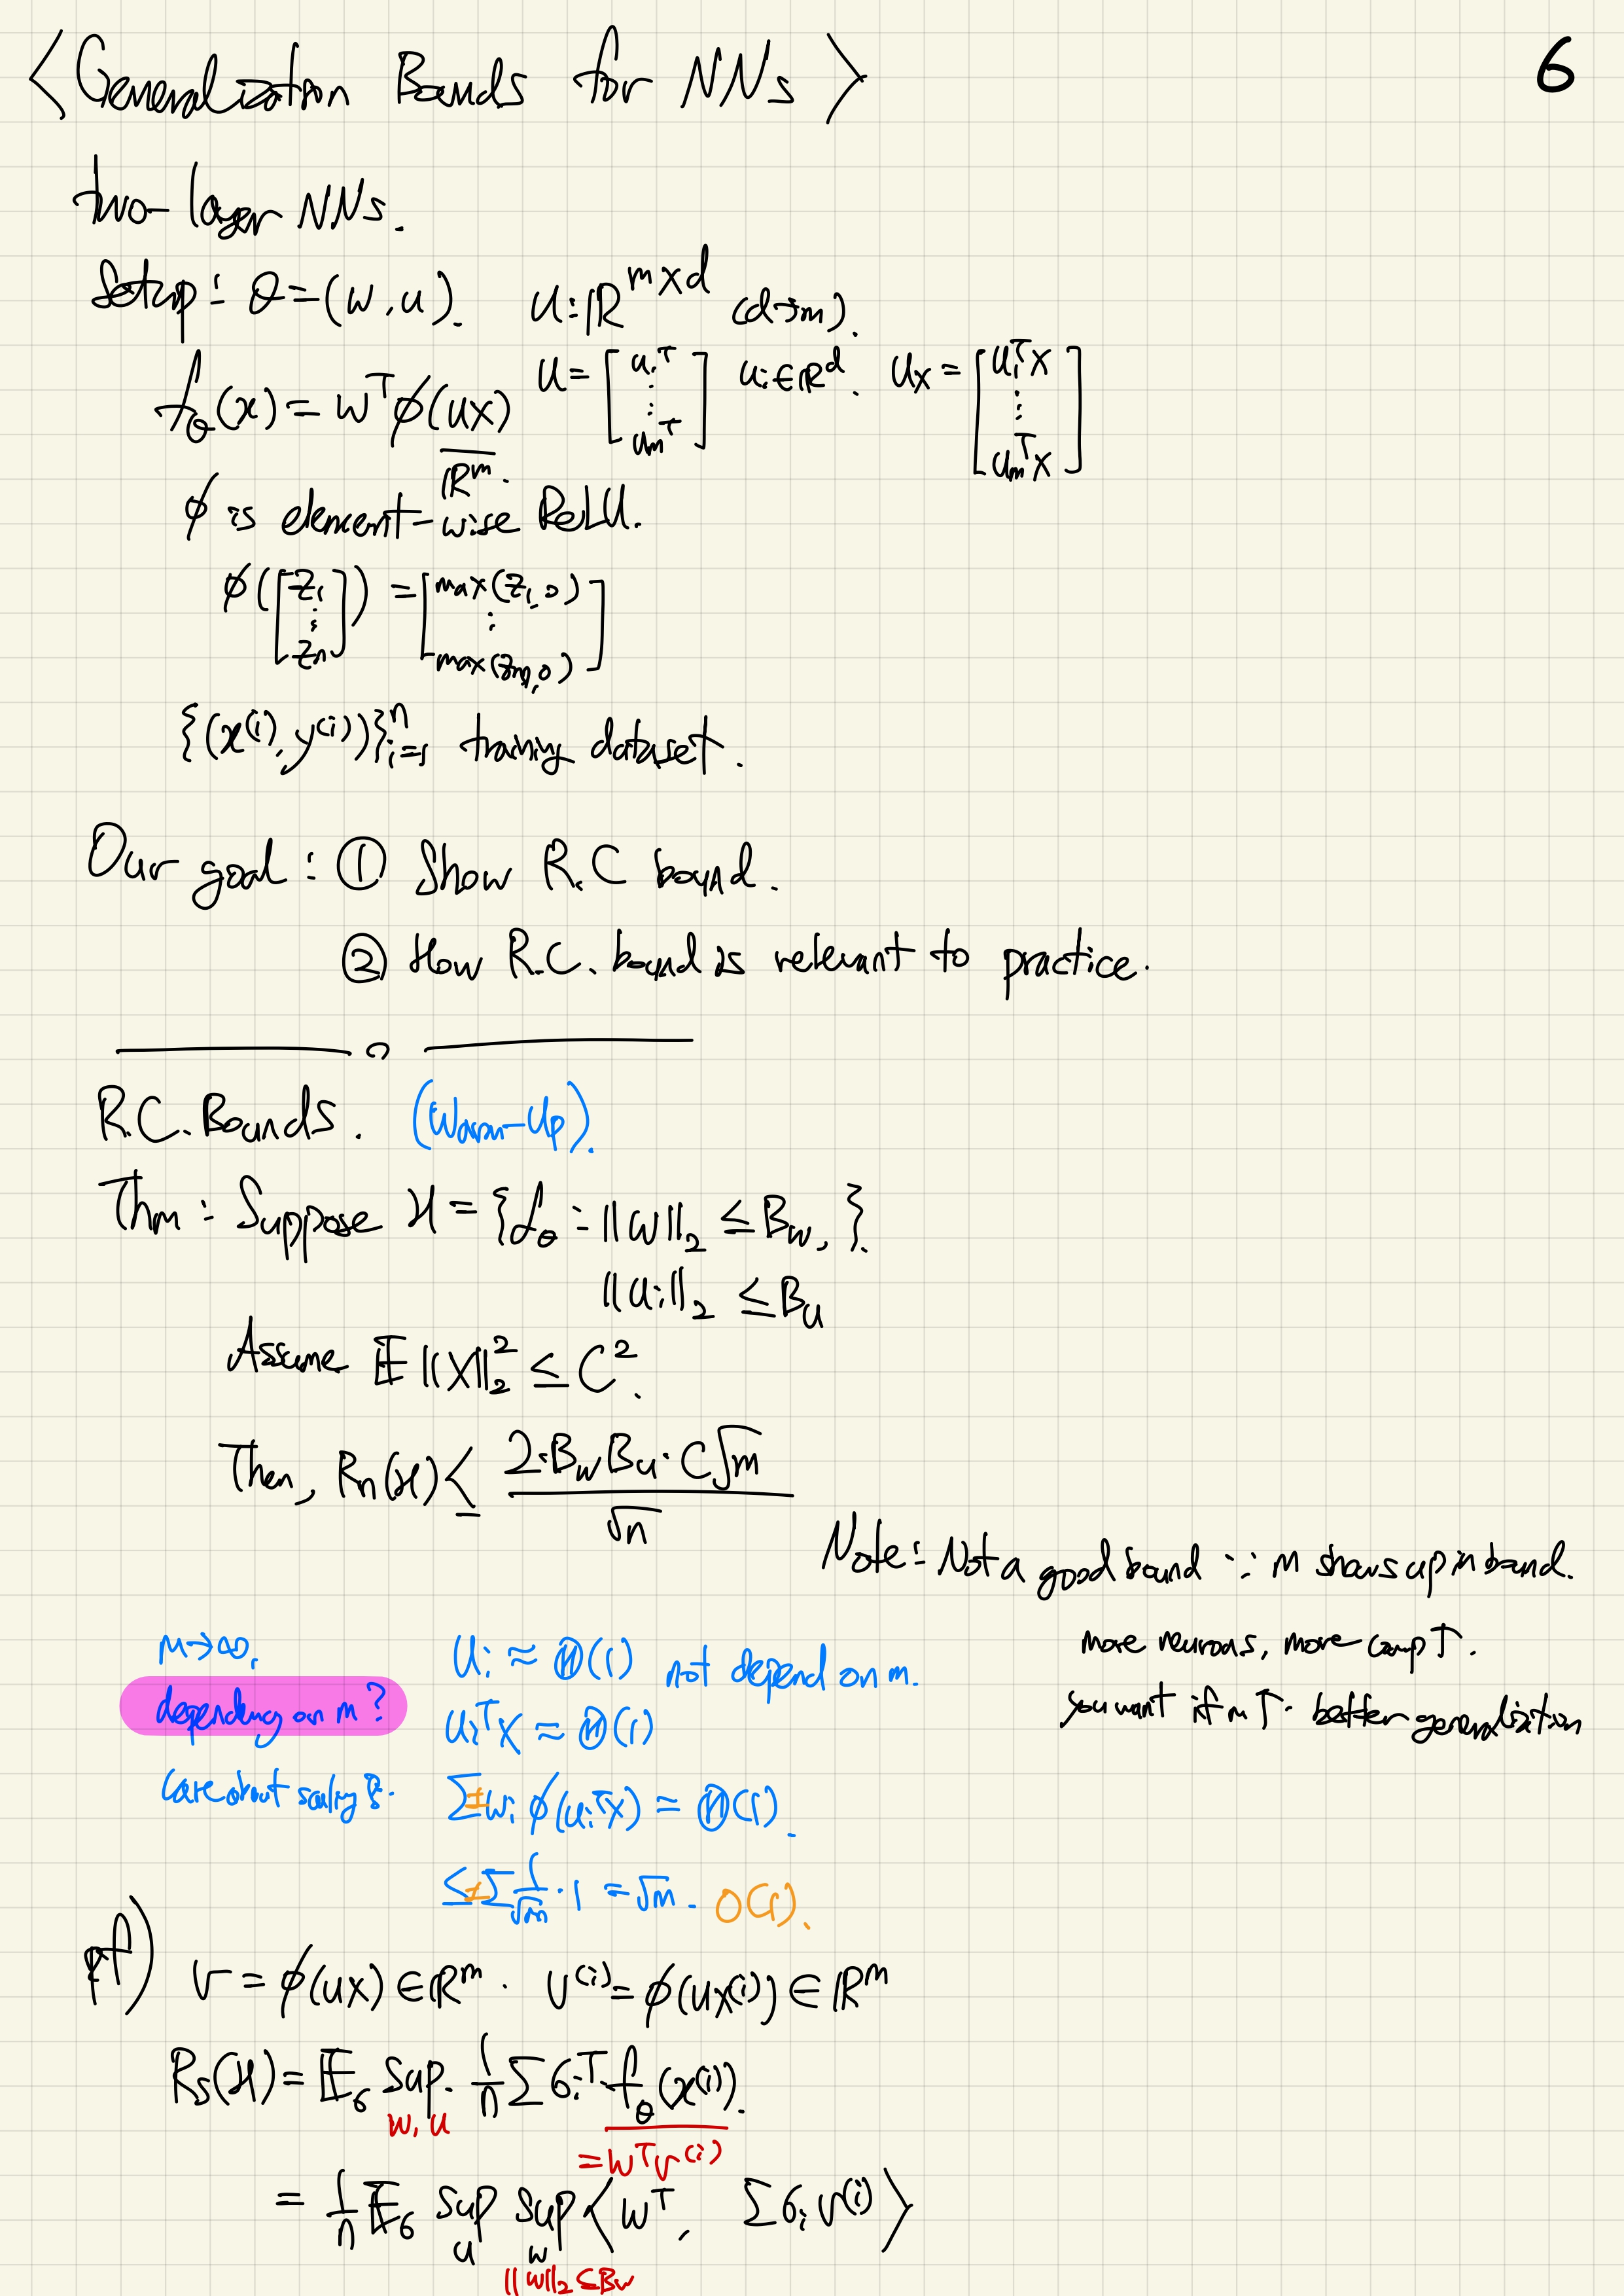 <Generalization Bounds for NNs> 6
two-layer NNs.
Setup: θ=(w,u). U:ℝ^{m×d} (d→m).
f_θ(x) = w^T φ(ux) U = [u_1^T ⋮ u_m^T] u_i∈ℝ^d. Ux = [u_1^T x ⋮ u_m^T x]
ℝ^m.
φ is element-wise ReLU.
φ([z_1 ⋮ z_n]) = [max(z_1,0) ⋮ max(z_m,0)]
{(x^{(i)}, y^{(i)})}_{i=1}^n training dataset.
Our goal: ① Show R.C bound.
② How R.C. bound is relevant to practice.
R.C. Bounds. (Warm-Up).
Thm: Suppose H = {f_θ : ||w||_2 ≤ B_w, }.
||u_i||_2 ≤ B_u
Assume E||X||_2^2 ≤ C^2.
Then, R_n(H) ≤ 2·B_w B_u·C√m / √n
Note: Not a good bound ∵ m shows up in bound.
more neurons, more comp↑.
you want if m↑. better generalization
m→∞,
dependency on m?
Care about scaling
U_i ≈ Θ(1) not depend on m.
u_i^T x ≈ Θ(1)
Σ±w_i φ(u_i^T x) = Θ(1).
≤ ±Σ 1/√m · 1 = √m. O(1).
pf) v = φ(ux) ∈ℝ^m. v^{(i)} = φ(ux^{(i)}) ∈ ℝ^m
R_S(H) = E_σ sup. 1/n Σ σ_i^T f_θ(x^{(i)}).
w, u
= w^T v^{(i)}
= 1/n E_σ sup_u sup_w <w^T, Σ σ_i v^{(i)}>
||w||_2 ≤ B_w